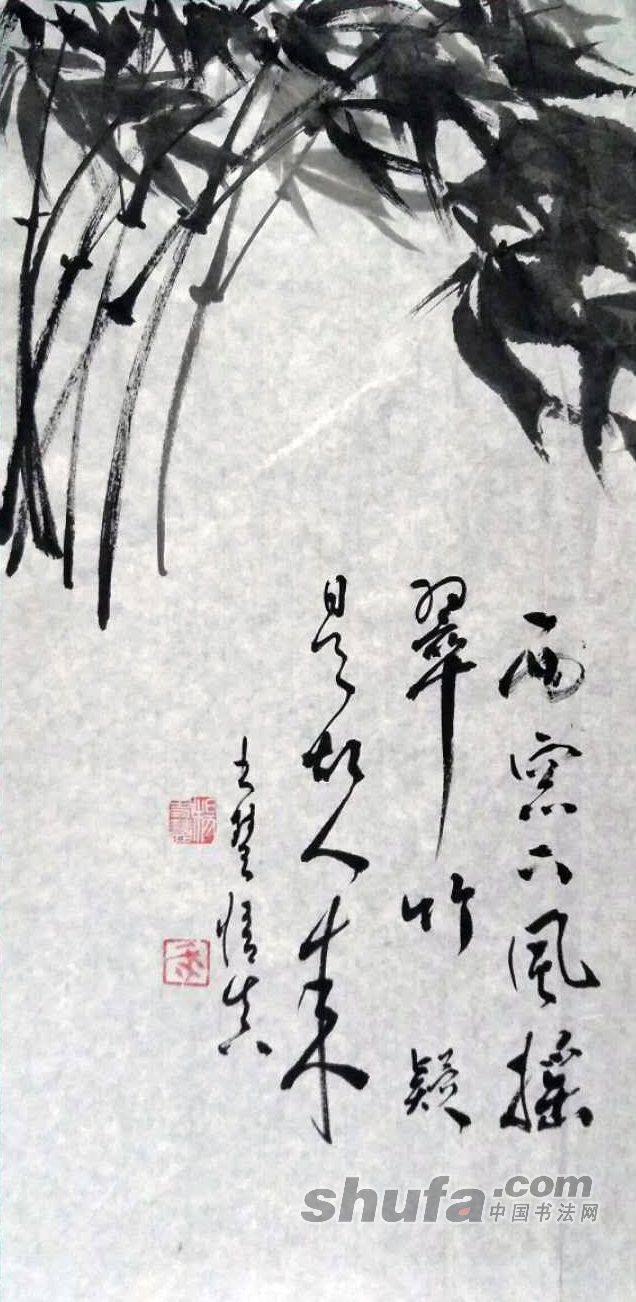 西窓下風摇
翠竹疑
是故人来
shufa.com
中国书法网